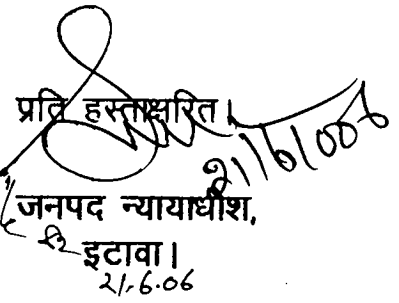 प्रति हस्ताक्षरित।
21/6/006
जनपद न्यायाधीश,
इटावा।
21.6.06